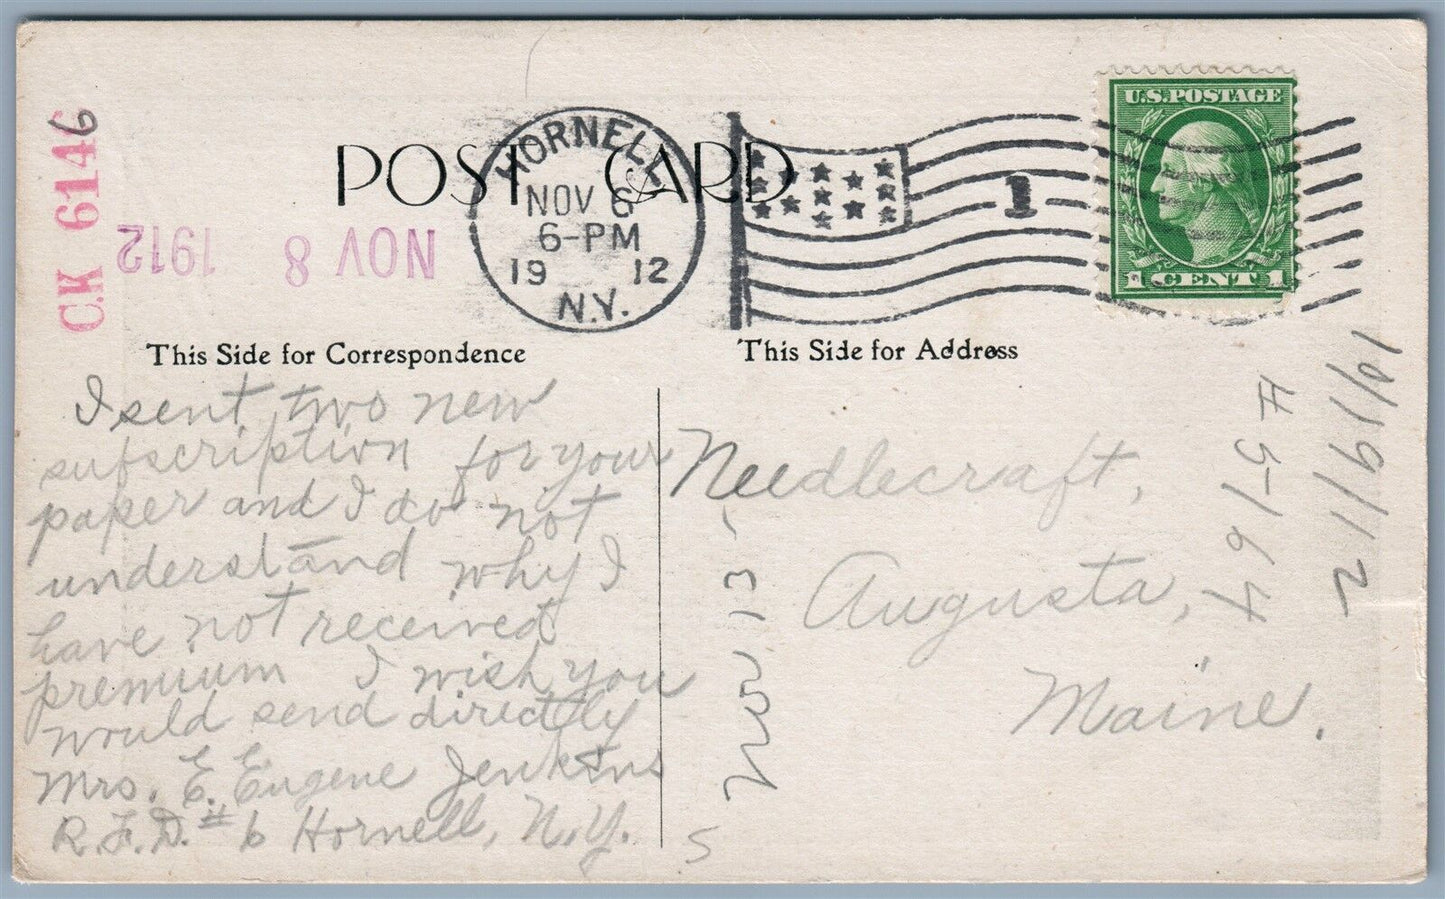 CK 6146
POST CARD
HORNELL
NOV 6
6-PM
19 12
N.Y.
1
U.S.POSTAGE
1 CENT 1
NOV 8 1912
This Side for Correspondence
This Side for Address
I sent two new
subscription for your
paper and I do not
understand why I
have not received
premium I wish you
would send directly
Mrs. E. Eugene Jenkins
R.F.D. #6 Hornell, N.Y.
Needlecraft,
Augusta,
Maine.
Nov 13 -
#5164
5